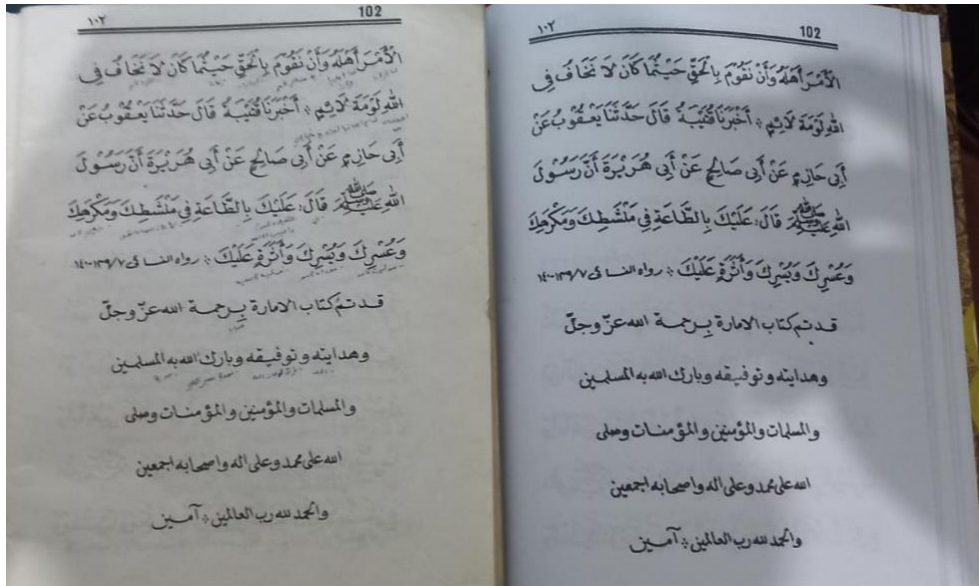 ١٠٢ 102
الْأَمْرَ أَهْلَهُ وَأَنْ نَقُوْمَ بِالْحَقِّ حَيْثُمَا كَانَ لَا نَخَافُ فِى
اللهِ لَوْمَةَ لَائِمٍ ❊ أَخْبَرَنَا قُتَيْبَةُ قَالَ حَدَّثَنَا يَعْقُوْبُ عَنْ
أَبِى حَازِمٍ عَنْ أَبِى صَالِحٍ عَنْ أَبِى هُرَيْرَةَ أَنَّ رَسُوْلَ
اللهِ ﷺ قَالَ: عَلَيْكَ بِالطَّاعَةِ فِى مَنْشَطِكَ وَمَكْرَهِكَ
وَعُسْرِكَ وَيُسْرِكَ وَأَثَرَةٍ عَلَيْكَ ❊ رواه النسائى ١٣٩/٧-١٤٠
قد تم كتاب الامارة برحمة الله عزّ وجلّ
وهدايته وتوفيقه وبارك الله به المسلمين
والمسلمات والمؤمنين والمؤمنات وصلى
الله على محمد وعلى اله واصحابه اجمعين
والحمد لله رب العالمين ❊ آمين
١٠٢ 102
الْأَمْرَ أَهْلَهُ وَأَنْ نَقُوْمَ بِالْحَقِّ حَيْثُمَا كَانَ لَا نَخَافُ فِى
اللهِ لَوْمَةَ لَائِمٍ ❊ أَخْبَرَنَا قُتَيْبَةُ قَالَ حَدَّثَنَا يَعْقُوْبُ عَنْ
أَبِى حَازِمٍ عَنْ أَبِى صَالِحٍ عَنْ أَبِى هُرَيْرَةَ أَنَّ رَسُوْلَ
اللهِ ﷺ قَالَ: عَلَيْكَ بِالطَّاعَةِ فِى مَنْشَطِكَ وَمَكْرَهِكَ
وَعُسْرِكَ وَيُسْرِكَ وَأَثَرَةٍ عَلَيْكَ ❊ رواه النسائى ١٣٩/٧-١٤٠
قد تم كتاب الامارة برحمة الله عزّ وجلّ
وهدايته وتوفيقه وبارك الله به المسلمين
والمسلمات والمؤمنين والمؤمنات وصلى
الله على محمد وعلى اله واصحابه اجمعين
والحمد لله رب العالمين ❊ آمين